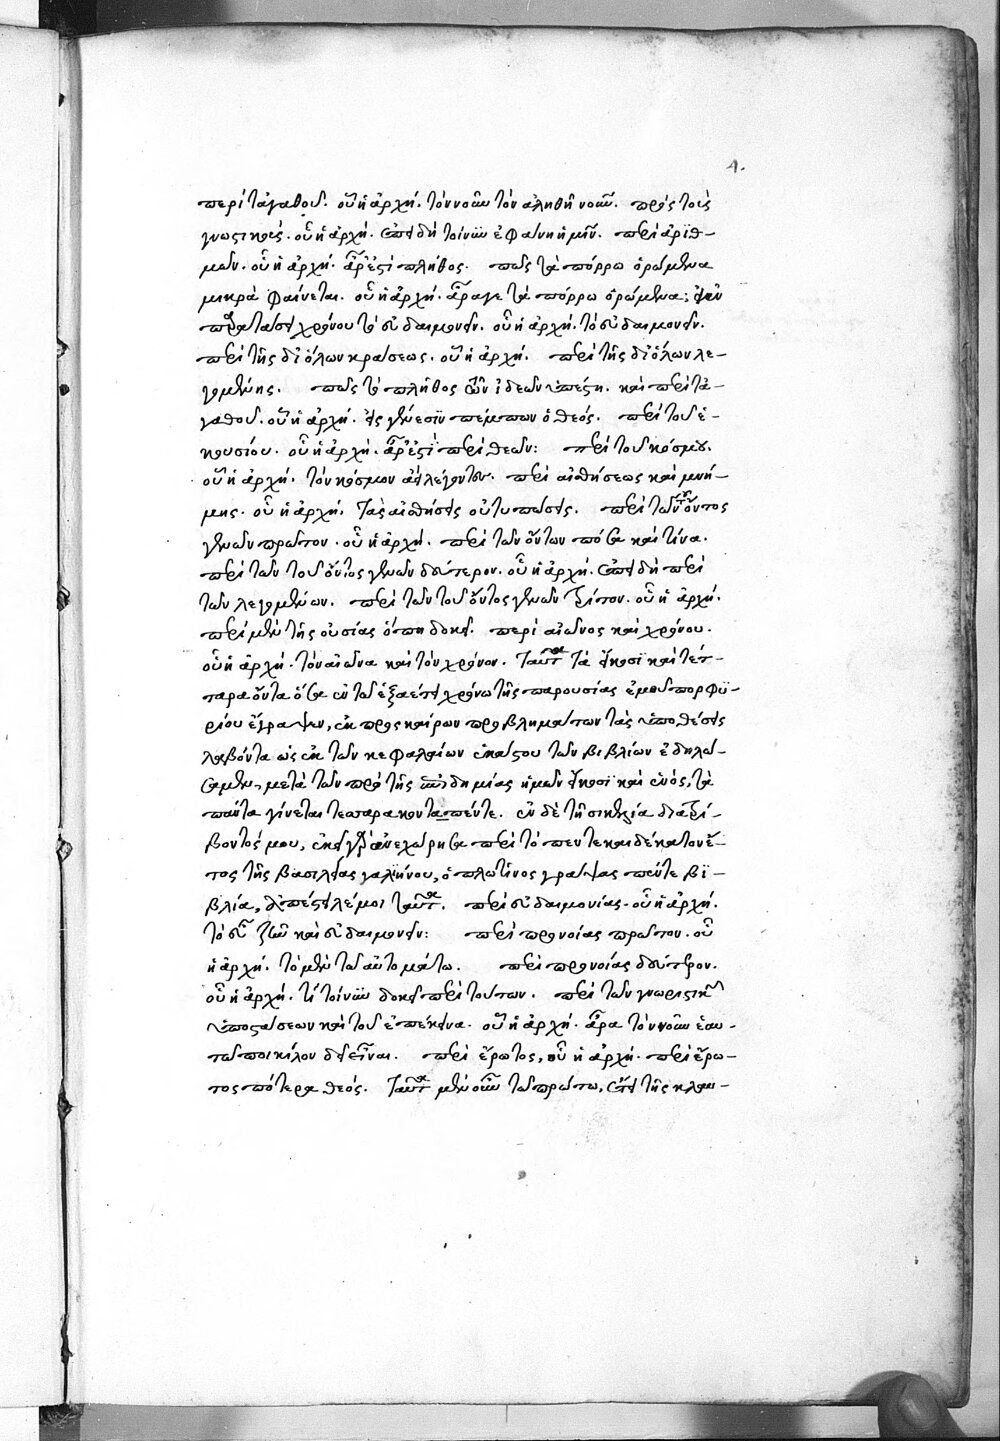 4.
περὶ τἀγαθοῦ. οὗ ἡ ἀρχή. τὸν νοῦν τὸν ἀληθῆ νοῦν. πρὸς τοὺς
γνωστικούς. οὗ ἡ ἀρχή. ἐπειδὴ τοίνυν ἐφάνη ἡμῖν. περὶ ἀριθ-
μῶν. οὗ ἡ ἀρχή. ἆρ' ἐστὶ πλῆθος. πῶς τὰ πόρρω ὁρώμενα
μικρὰ φαίνεται. οὗ ἡ ἀρχή. ἆρά γε τὰ πόρρω ὁρώμενα; εἰ ἐν
παρατάσει χρόνου τὸ εὐδαιμονεῖν. οὗ ἡ ἀρχή. τὸ εὐδαιμονεῖν.
περὶ τῆς δι' ὅλων κράσεως. οὗ ἡ ἀρχή. περὶ τῆς δι' ὅλων λε-
γομένης. πῶς τὸ πλῆθος τῶν ἰδεῶν ὑπέστη. καὶ περὶ τἀ-
γαθοῦ. οὗ ἡ ἀρχή. εἰς γένεσιν πέμπων ὁ θεός. περὶ τοῦ ἑ-
κουσίου. οὗ ἡ ἀρχή. ἆρ' ἐστὶ περὶ θεῶν: περὶ τοῦ κόσμου.
οὗ ἡ ἀρχή. τὸν κόσμον ἀεὶ λέγοντες. περὶ αἰσθήσεως καὶ μνή-
μης. οὗ ἡ ἀρχή. τὰς αἰσθήσεις οὐ τυπώσεις. περὶ τῶν τοῦ ὄντος
γενῶν πρῶτον. οὗ ἡ ἀρχή. περὶ τῶν ὄντων πόσα καὶ τίνα.
περὶ τῶν τοῦ ὄντος γενῶν δεύτερον. οὗ ἡ ἀρχή. ἐπειδὴ περὶ
τῶν λεγομένων. περὶ τῶν τοῦ ὄντος γενῶν τρίτον. οὗ ἡ ἀρχή.
περὶ μὲν τῆς οὐσίας ὅπη δοκεῖ. περὶ αἰῶνος καὶ χρόνου.
οὗ ἡ ἀρχή. τὸν αἰῶνα καὶ τὸν χρόνον. ταῦτα τὰ εἴκοσι καὶ τέτ-
ταρα ὄντα ὅσα ἐν τῷ ἑξαέτει χρόνῳ τῆς παρουσίας ἐμοῦ πορφυ-
ρίου ἔγραψεν, ἐκ προσκαίρων προβλημάτων τὰς ὑποθέσεις
λαβόντα ὡς ἐκ τῶν κεφαλαίων ἑκάστου τῶν βιβλίων ἐδηλώ-
σαμεν, μετὰ τῶν πρὸ τῆς ἐπιδημίας ἡμῶν εἴκοσι καὶ ἑνός, τὰ
πάντα γίνεται τεσσαρακονταπέντε. ἐν δὲ τῇ σικελίᾳ διατρί-
βοντός μου, ἐκεῖ γὰρ ἀνεχώρησα περὶ τὸ πεντεκαιδέκατον ἔ-
τος τῆς βασιλείας γαλιήνου, ὁ πλωτῖνος γράψας πέντε βι-
βλία, ἀπέστειλέ μοι ταῦτα. περὶ εὐδαιμονίας. οὗ ἡ ἀρχή.
τὸ εὖ ζῆν καὶ εὐδαιμονεῖν: περὶ προνοίας πρῶτον. οὗ
ἡ ἀρχή. τὸ μὲν τῷ αὐτομάτῳ. περὶ προνοίας δεύτερον.
οὗ ἡ ἀρχή. τί τοίνυν δοκεῖ περὶ τούτων. περὶ τῶν γνωριστικῶν
ὑποστάσεων καὶ τοῦ ἐπέκεινα. οὗ ἡ ἀρχή. ἆρα τὸν νοοῦν ἑαυ-
τὸ ποικίλον δεῖ εἶναι. περὶ ἔρωτος, οὗ ἡ ἀρχή. περὶ ἔρω-
τος πότερα θεός. ταῦτα μὲν οὖν τῷ πρώτῳ, ἔτει τῆς κλαυ-